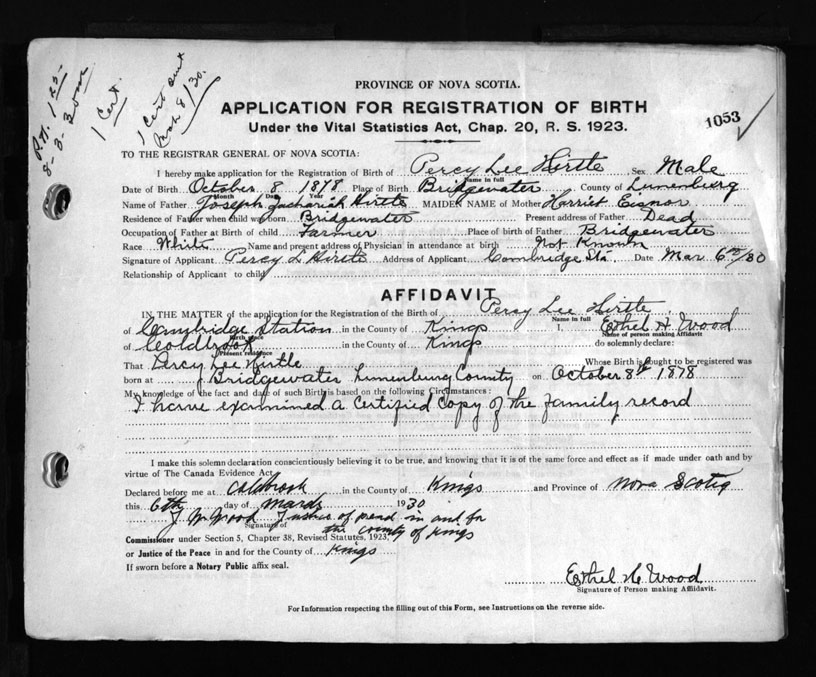 P.H. 1.25-
8-3-30
1 Cert.
1 Cert sent
Mch 8/30.
PROVINCE OF NOVA SCOTIA.
APPLICATION FOR REGISTRATION OF BIRTH
1053
Under the Vital Statistics Act, Chap. 20, R. S. 1923.
TO THE REGISTRAR GENERAL OF NOVA SCOTIA:
I hereby make application for the Registration of Birth of Percy Lee Hirtle Sex Male
Name in full
Date of Birth October 8 1878 Place of Birth Bridgewater County of Lunenburg
Month Day Year
Name of Father Joseph Zachariah Hirtle MAIDEN NAME of Mother Harriet Eisnor
Residence of Father when child was born Bridgewater Present address of Father Dead
Occupation of Father at Birth of child Farmer Place of birth of Father Bridgewater
Race White Name and present address of Physician in attendance at birth Not Known
Signature of Applicant Percy L Hirtle Address of Applicant Cambridge Sta. Date Mar 6th/30
Relationship of Applicant to child
AFFIDAVIT
IN THE MATTER of the application for the Registration of the Birth of Percy Lee Hirtle
Name in full
of Cambridge Station in the County of Kings I, Ethel H Wood
Birth place Name of person making Affidavit
of Coldbrook in the County of Kings do solemnly declare:
Present residence
That Percy Lee Hirtle Whose Birth is sought to be registered was
born at Bridgewater Lunenburg County on October 8th 1878
My knowledge of the fact and date of such Birth is based on the following Circumstances:
I have examined a Certified Copy of the family record
I make this solemn declaration conscientiously believing it to be true, and knowing that it is of the same force and effect as if made under oath and by
virtue of The Canada Evidence Act.
Declared before me at Coldbrook in the County of Kings and Province of Nova Scotia
this 6th day of March 1930
J W Wood Justice of peace in and for
Signature of the county of Kings
Commissioner under Section 5, Chapter 38, Revised Statutes, 1923,
or Justice of the Peace in and for the County of Kings
If sworn before a Notary Public affix seal.
Ethel H Wood
Signature of Person making Affidavit.
For Information respecting the filling out of this Form, see Instructions on the reverse side.